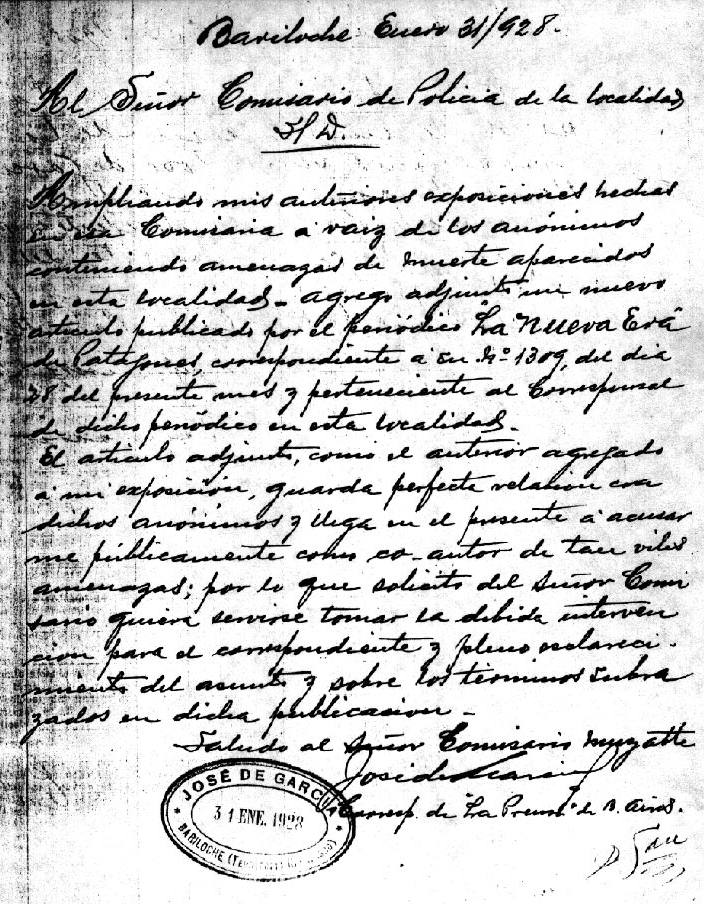 Bariloche Enero 31/928.
Al Señor Comisario de Policia de la localidad
S/D.
Ampliando mis anteriores exposiciones hechas
en esa Comisaria á raiz de los anónimos
conteniendo amenazas de muerte aparecidos
en esta localidad - agrego adjunto un nuevo
articulo publicado por el periódico "La Nueva Era"
de Patagones, correspondiente a su Nº 1309, del dia
28 del presente mes y perteneciente al Corresponsal
de dicho periódico en esta localidad.-
El articulo adjunto, como el anterior agregado
á mi exposición, guarda perfecta relacion con
dichos anónimos y llega en el presente á acusar
me públicamente como co-autor de tan viles
amenazas; por lo que solicito del Señor Comi
sario quiera servirse tomar la debida interven
cion para el correspondiente y pleno esclareci-
miento del asunto y sobre los términos subra
yados en dicha publicacion.-
Saludo al Señor Comisario muy atte
José de García
Corresp. de "La Prensa" de B. Aires.
JOSÉ DE GARCIA
31 ENE. 1928
BARILOCHE